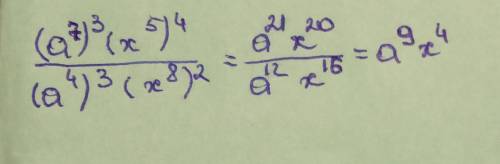 (a⁷)³(x⁵)⁴ / (a⁴)³(x⁸)² = a²¹x²⁰ / a¹²x¹⁶ = a⁹x⁴